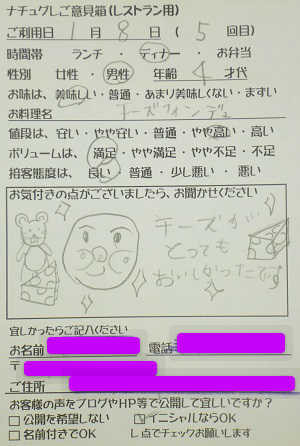 ナチュグレご意見箱(レストラン用)
ご利用日 1月 8日 ( 5 回目)
時間帯 ランチ ・ ディナー ・ お弁当
性別 女性 ・ 男性 年齢 4 才代
お味は、美味しい・普通・あまり美味しくない・まずい
お料理名 チーズフォンデュ
値段は、安い・やや安い・普通・やや高い・高い
ボリュームは、満足・やや満足・やや不足・不足
接客態度は、良い・普通・少し悪い・悪い
お気付きの点がございましたら、お聞かせください
チーズが…
とっても
おいしかったです
宜しかったらご記入ください
お名前 電話
〒
ご住所
お客様の声をブログやHP等で公開して宜しいですか?
□公開を希望しない ☑イニシャルならOK
□名前付きでOK レ点でチェックお願いします